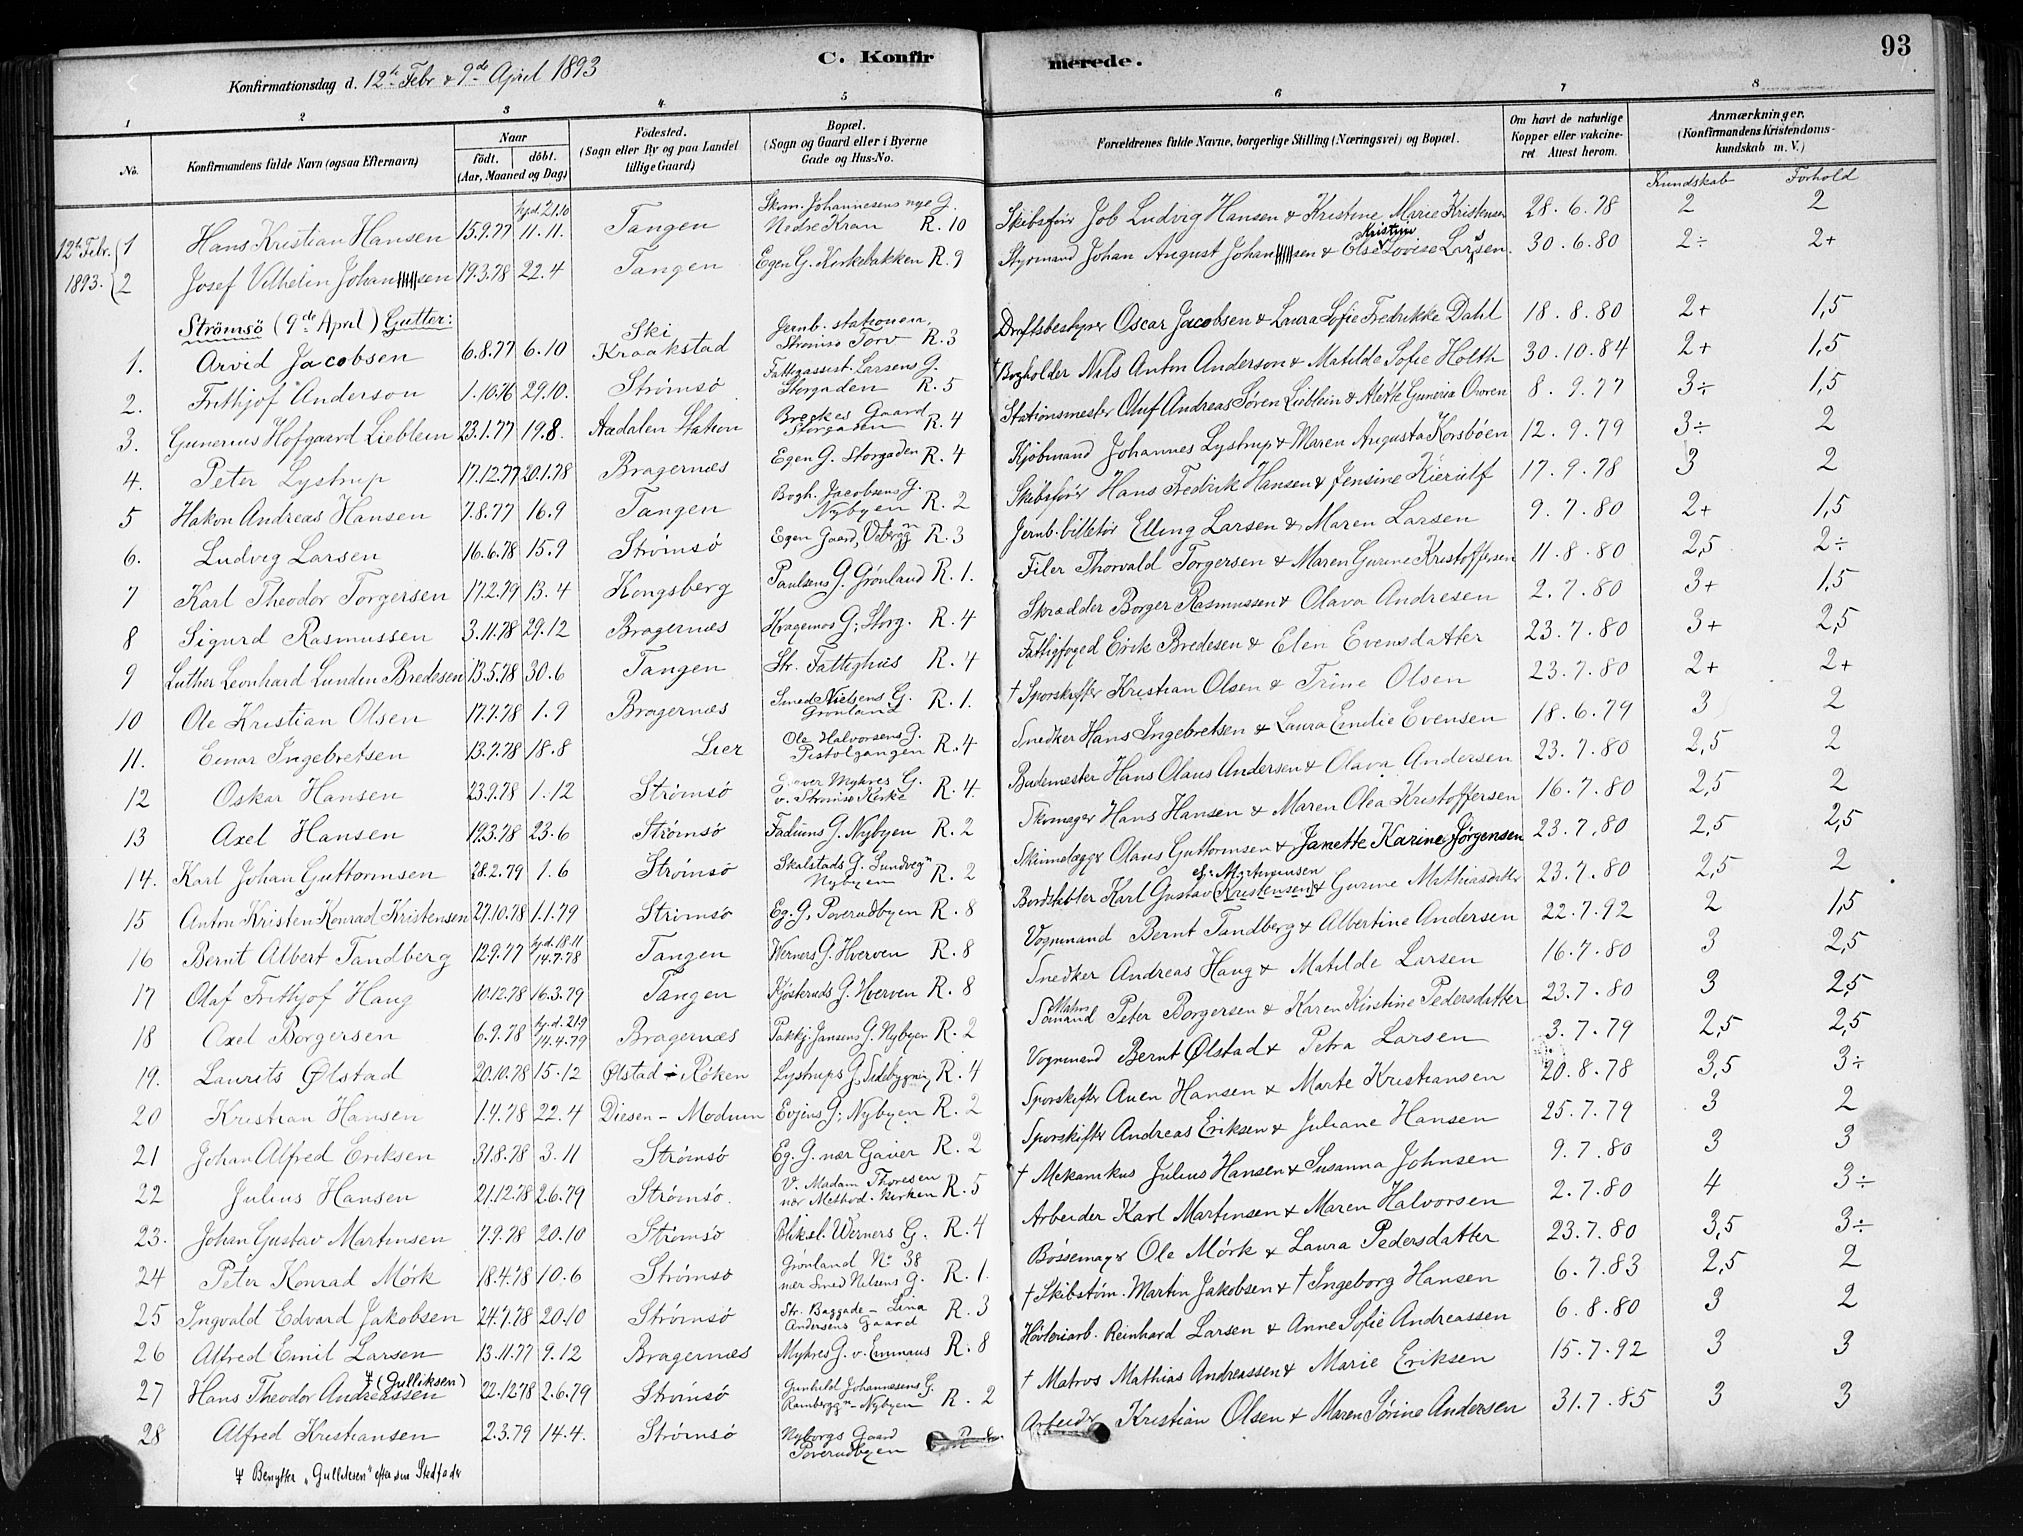 93
C. Konfirmerede.
Konfirmationsdag d. 12te Febr & 9de April 1893
1 2 3 4 5 6 7 8
No. Konfirmandens fulde Navn (ogsaa Efternavn) Naar födt. döbt. (Aar, Maaned og Dag) Födested. (Sogn eller By og paa Landet tillige Gaard) Bopæl. (Sogn og Gaard eller i Byerne Gade og Hus-No. Forældrenes fulde Navne, borgerlige Stilling (Næringsvei) og Bopæl. Om havt de naturlige Kopper eller vakcineret. Attest herom. Anmærkninger. (Konfirmandens Kristendomskundskab m. V.)
Kundskab Forhold
12te Febr. 1893. 1 Hans Kristian Hansen 15.9.77 hjd. 21.10 11.11. Tangen Skom. Johannesens nye G. Nedre Kran R. 10 Skibsfører Job Ludvig Hansen & Kristine Marie Kristensen 28.6.78 2 2
2 Josef Vilhelm Johansen 19.3.78 22.4 Tangen Egen G. Kirkebakken R. 9 Styrmand Johan August Johansen & Else Kristine Lovise Larsen 30.6.80 2÷ 2+
Strömsö (9de April) Gutter:
1. Arvid Jacobsen 6.8.77 6.10 Ski Kraakstad Jernb. stationen, Strömsö Torv R. 3 Driftsbestyrer Oscar Jacobsen & Laura Sofie Fredrikke Dahl 18.8.80 2+ 1,5
2. Frithjof Anderson 1.10.76 29.10. Strömsö Fattigassist. Larsens G. Storgaden R. 5 † Bogholder Nils Anton Anderson & Matilde Sofie Holth 30.10.84 2+ 1,5
3. Gunerius Hofgaard Lieblein 23.1.77 19.8. Aadalen Station Breckes Gaard Storgaden R. 4 Stationsmester Oluf Andreas Sören Lieblein & Alette Guneria Omoren 8.9.77 3÷ 1,5
4. Peter Lystrup 17.12.77 20.1.78 Bragernæs Egen G. Storgaden R. 4 Kjöbmand Johannes Lystrup & Maren Augusta Korsböen 12.9.79 3÷ 2
5 Hakon Andreas Hansen 7.8.77 16.9 Tangen Bogh. Jacobsens G. Nybyen R. 2 Skibsfører Hans Fredrik Hansen & Jensine Kierulf 17.9.78 3 2
6. Ludvig Larsen 16.6.78 15.9 Strömsö Egen Gaard, R. 3 Jernb. billetör Elling Larsen & Maren Larsen 9.7.80 2+ 1,5
7 Karl Theodor Torgersen 17.2.79 13.4 Kongsberg Paulsens G. Grönland R. 1. Filer Thorvald Torgersen & Maren Gurine Kristoffersen 11.8.80 2,5 2÷
8 Sigurd Rasmussen 3.11.78 29.12 Bragernæs Kragemos G; Storg. R. 4 Skrædder Borger Rasmussen & Olava Andresen 2.7.80 3+ 1,5
9 Luther Leonhard Lunden Bredesen 13.5.78 30.6 Tangen Str. Fattighus R. 4 Fattigfoged Erik Bredesen & Elen Evensdatter 23.7.80 3+ 2,5
10 Ole Kristian Olsen 17.7.78 1.9 Bragernæs Smed Nielsens G. Grönland R. 1. † Sporskifter Kristian Olsen & Trine Olsen 23.7.80 2+ 2+
11. Einar Ingebretsen 13.7.78 18.8 Lier Ole Halvorsens G. Pistolgangen R. 4 Snedker Hans Ingebretsen & Laura Emilie Evensen 18.6.79 3 2
12 Oskar Hansen 23.9.78 1.12 Strömsö Graver Myhres G. v. Strömsö Kirke R. 4. Bademester Hans Olaus Andersen & Olava Andersen 23.7.80 2,5 2
13 Axel Hansen 19.3.78 23.6 Strömsö Fadums G. Nybyen R. 2 Skomager Hans Hansen & Maren Olea Kristoffersen 16.7.80 2,5 2
14. Karl Johan Guttormsen 28.2.79 1.6 Strömsö Skalstads G. Sundvegn Nybyen R. 2 Skinnelægger Olaus Guttormsen & Janette Karine Jörgensen 23.7.80 2,5 2,5
15 Anton Kristen Konrad Kristensen 27.10.78 1.1.79 Strömsö Eg. G, Poverudbyen R. 8 Bordstabler Karl Gustav (Kristensen) el. Mortensen & Gurine Mathiasdatter 23.7.80 2,5 2
16 Bernt Albert Tandberg 12.9.77 hjd. 18.11 14.7.78 Tangen Werners G. Hverven R. 8 Vognmand Bernt Tandberg & Albertine Andersen 22.7.92 2 1,5
17 Olaf Frithjof Haug 10.12.78 16.3.79 Tangen Kjösteruds G. Hverven R. 8 Snedker Andreas Haug & Matilde Larsen 16.7.80 3 2,5
18 Axel Borgersen 6.9.78 hj. d. 21.9 14.4.79 Bragernæs Pakkj. Jansens G. Nybyen R. 2 Sömand Peter Borgersen & Karen Kirstine Pedersdatter 23.7.80 3 2,5
19. Laurits Ølstad 20.10.78 15.12 Ølstad i Röken Lystrups G, Sidebygning R. 4 Vognmand Bernt Ølstad & Petra Larsen 3.7.79 2,5 2,5
20 Kristian Hansen 1.4.78 22.4 Diesen – Modum Evjens G; Nybyen R. 2 Sporskifter Auen Hansen & Marte Kristiansen 20.8.78 3,5 3÷
21 Johan Alfred Eriksen 31.8.78 3.11 Strömsö Eg. G. nær Gaver R. 2 Sporskifter Andreas Eriksen & Juliane Hansen 25.7.79 3 2
22 Julius Hansen 21.12.78 26.79 Strömsö. V. Madam Thoresen nær Method. kirken R. 5 † Mekanikus Julius Hansen & Susanna Johnsen 9.7.80 3 3
23. Johan Gustav Martinsen 7.9.78 20.10 Strömsö Bliksl. Werners G. R. 4 Arbeider Karl Martinsen & Maren Halvorsen 2.7.80 4 3÷
24 Peter Konrad Mörk 18.4.78 10.6 Strömsö Grönland No 38 nær Smed Nilsens G. R. 1. Bössemager Ole Mörk & Laura Pedersdatter 23.7.80 3,5 3÷
25 Ingvald Edvard Jakobsen 24.7.78 20.10 Strömsö Str. Baggade – Lina Andersens Gaard R. 3 † Skibstöm. Martin Jakobsen & † Ingeborg Hansen 6.7.83 2,5 2
26 Alfred Emil Larsen 13.11.77 9.12 Bragernæs Myhres G. v. Emmaus R. 8 Hövleriarb. Reinhard Larsen & Anne Sofie Andreassen 6.8.80 3 2
27 Hans Theodor Andreassen (Gulliksen) 22.12.78 2.6.79 Strömsö Gunhild Johannesens G. Nybyen R. 2 † Matros Mathias Andreassen & Marie Eriksen 15.7.92 3 3
28 Alfred Kristiansen 2.3.79 14.4. Strömsö Nyborgs Gaard Poverudbyen R. 8. Arbeider Kristian Olsen & Maren Sörine Andersen 31.7.85 3 3
Benytter "Gulliksen" efter sin Stedfader